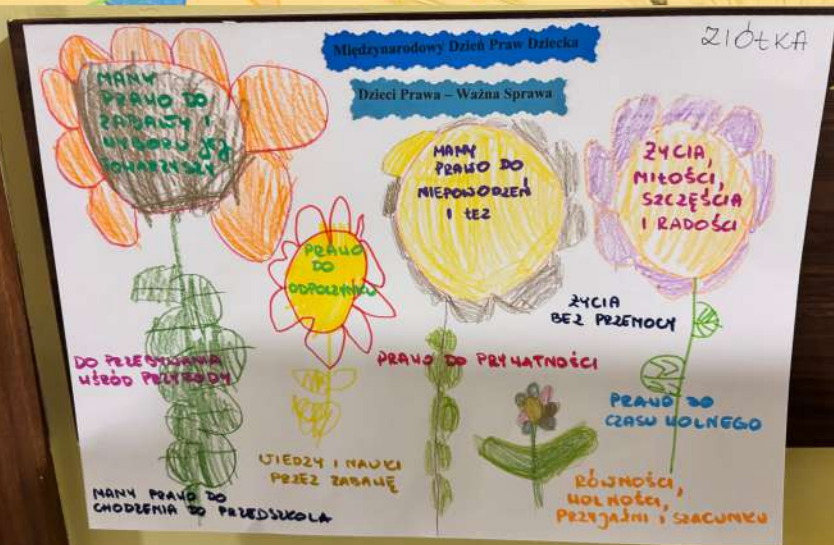 Międzynarodowy Dzień Praw Dziecka
ZIÓŁKA
Dzieci Prawa – Ważna Sprawa
MAMY
PRAWO DO
ZABAWY I
WYBORU JEJ
TOWARZYSZY
PRAWO
DO
ODPOCZYNKU
MAMY
PRAWO DO
NIEPOWODZEŃ
I ŁEZ
ŻYCIA,
MIŁOŚCI,
SZCZĘŚCIA
I RADOŚCI
ŻYCIA
BEZ PRZEMOCY
DO PRZEBYWANIA
WŚRÓD PRZYRODY
PRAWO DO PRYWATNOŚCI
PRAWO DO
CZASU WOLNEGO
WIEDZY I NAUKI
PRZEZ ZABAWĘ
MAMY PRAWO DO
CHODZENIA DO PRZEDSZKOLA
RÓWNOŚCI,
WOLNOŚCI,
PRZYJAŹNI I SZACUNKU